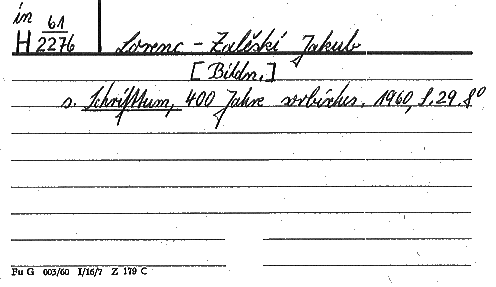 in
H 61/2276
Lorenc-Zalěski Jakub
[Bildn.]
s. Schrifttum, 400 Jahre sorbisches. 1960, S. 29. 8°
Fu G 003/60 I/16/7 Z 179 C